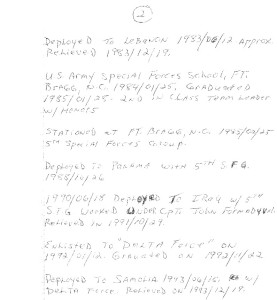 2
Deployed to Lebanon 1983/06/12. Approx.
Relieved 1983/12/19.
U.S. Army Special Forces School, FT.
Bragg, N.C. 1984/01/25. Graduated
1985/01/25. 2nd in Class Team Leader
w/ Honors
Stationed at FT. Bragg, N.C. 1985/02/25
5th Special Forces Group.
Deployed to Panama with 5th S.F.G.
1988/10/26
1990/06/18 Deployed to Iraq w/ 5th
S.F.G Worked under Cpt. John
Relieved in 1991/10/29.
Enlisted to "Delta Force" on
1992/01/12. Graduated on 1992/11/22
Deployed to Samolia 1993/06/15. w/
Delta Force. Relieved on 1993/12/19.